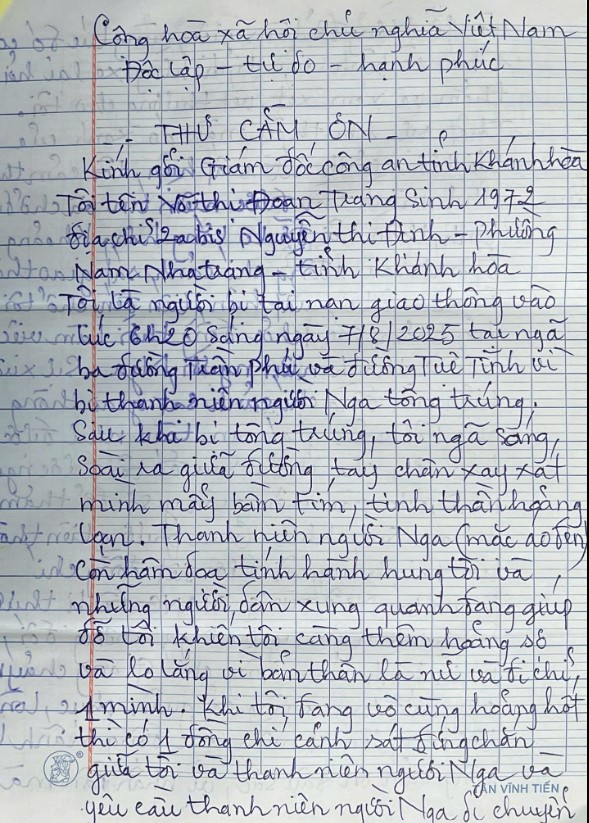 Công hoà xã hội chủ nghĩa Việt Nam
Độc lập - tự do - hạnh phúc
- THƯ CẢM ƠN -
Kính gởi Giám đốc công an tỉnh Khánh hòa
Tôi tên Võ thị Đoan Trang Sinh 1972
địa chỉ 2abis Nguyễn thị Định - phường
Nam Nha trang - tỉnh Khánh hòa
Tôi là người bị tai nạn giao thông vào
lúc 6h20 sáng ngày 7/8/2025 tại ngã
ba đường Trần phú và đường Tuệ Tĩnh vì
bị thanh niên người Nga tông trúng.
Sau khi bị tông trúng, tôi ngã sang,
soài ra giữa đường tay chân xay xát
mình mẩy bầm tím, tinh thần hoảng
loạn. Thanh niên người Nga (mặc áo đen)
còn hâm doạ tính hành hung tôi và
những người dân xung quanh đang giúp
đỡ tôi khiến tôi càng thêm hoảng sợ
và lo lắng vì bản thân là nữ và đi chỉ
1 mình. Khi tôi đang vô cùng hoảng hốt
thì có 1 đồng chí cảnh sát đứng chắn
giữa tôi và thanh niên người Nga và
yêu cầu thanh niên người Nga di chuyển
VĨNH TIẾN